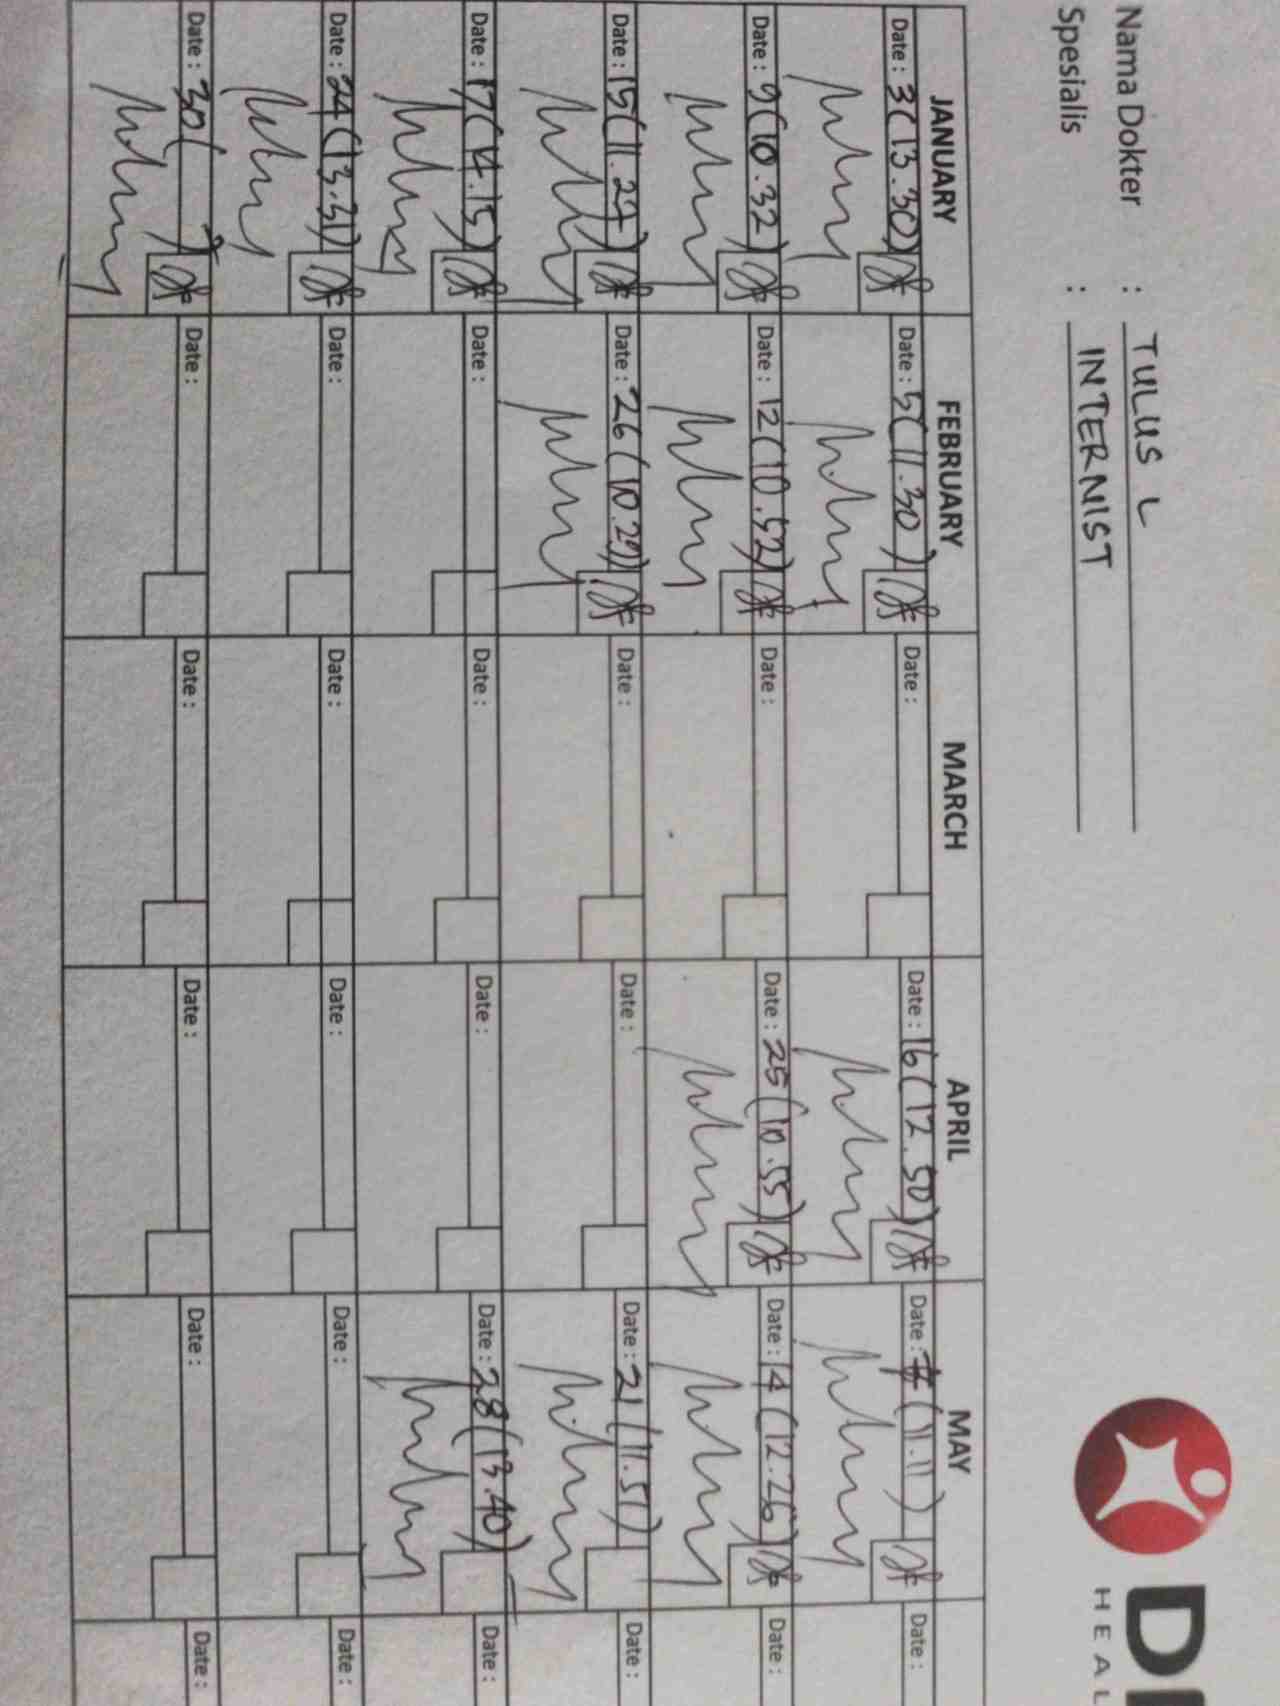 Nama Dokter : TULUS L
Spesialis : INTERNIST
D
HEAL
JANUARY FEBRUARY MARCH APRIL MAY
Date : 3 (13.30) Date : 5 (11.30) Date : Date : 16 (12.50) Date : 7 (11.11) Date :
Date : 9 (10.32) Date : 12 (10.52) Date : Date : 25 (10.55) Date : 14 (12.26) Date :
Date : 15 (11.27) Date : 26 (10.29) Date : Date : Date : 21 (11.51) Date :
Date : 17 (14.15) Date : Date : Date : Date : 28 (13.40) Date :
Date : 24 (13.31) Date : Date : Date : Date : Date :
Date : 30 ( ) Date : Date : Date : Date : Date :